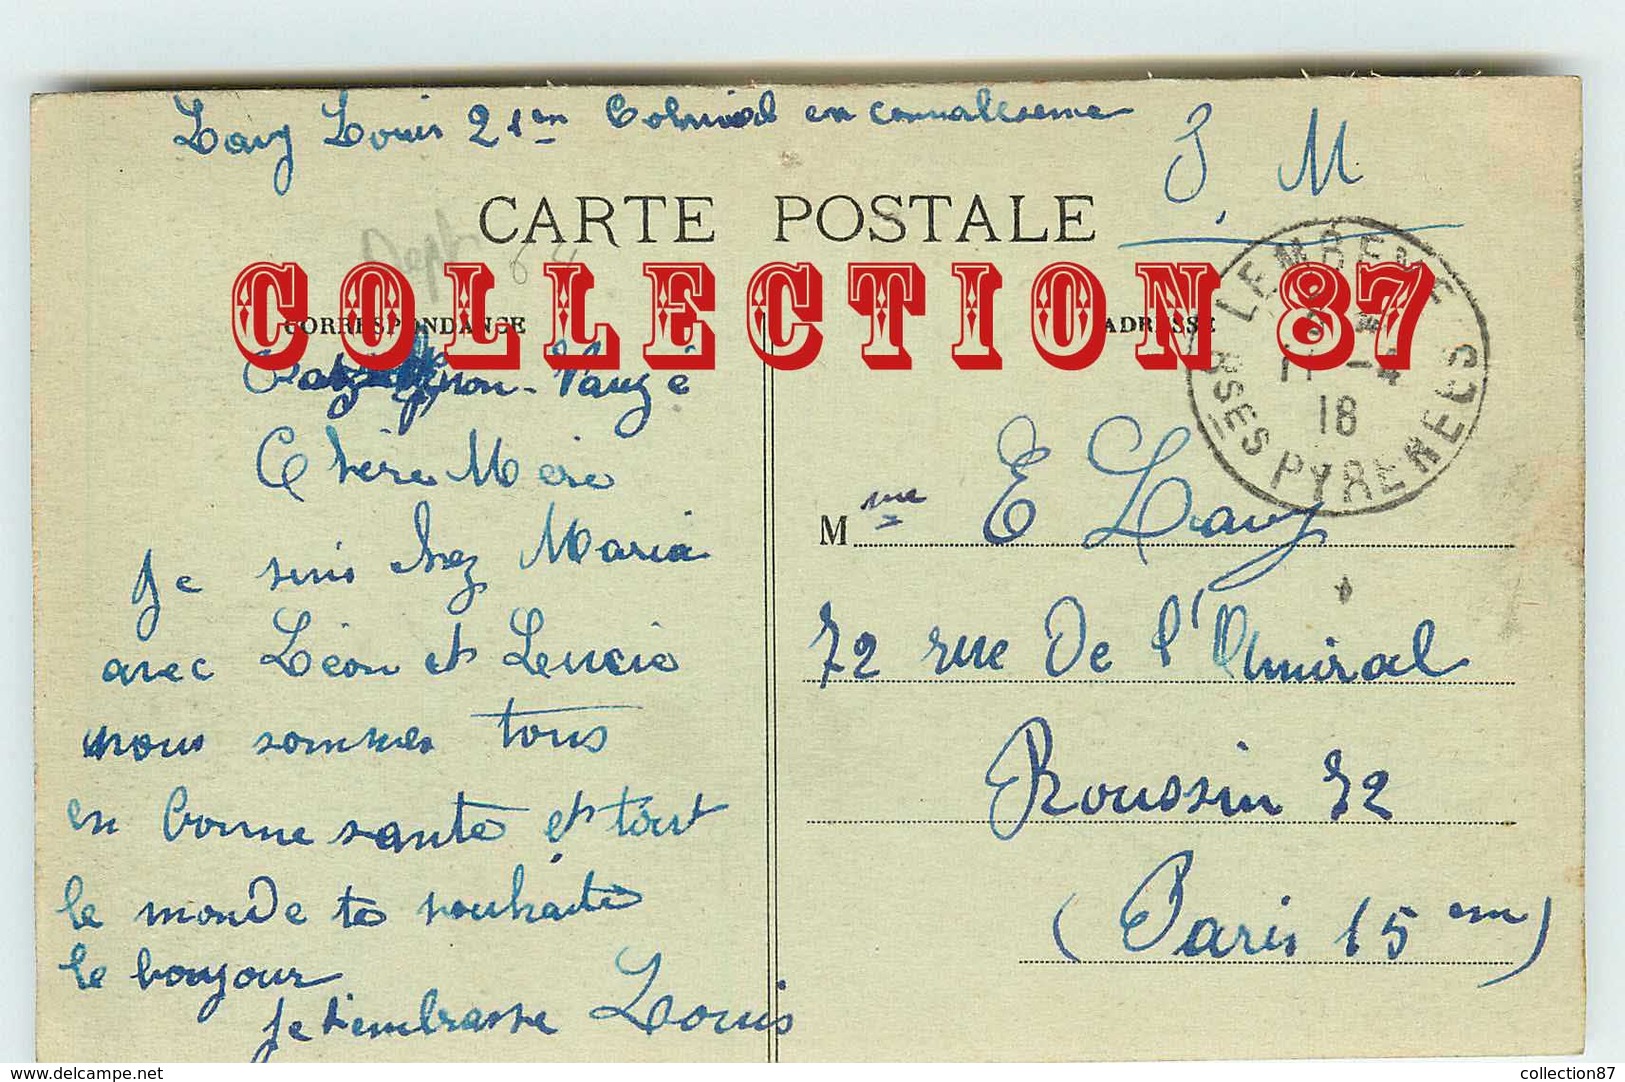 Lavy Louis 21em Colonial en convalescence
S. M
CARTE POSTALE
Dept 64
COLLECTION 87
CORRESPONDANCE
ADRESSE
LEMBEYE
BSES PYRENEES
11 - 1
18
Chère Mère
Je suis chez Maria
avec Léon et Lucie
nous sommes tous
en bonne santé et tout
le monde te souhaite
le bonjour
Je t'embrasse Louis
Mme E Lavy
72 rue De l'Amiral
Roussin 72
(Paris 15em)
delcampe.net
collection87